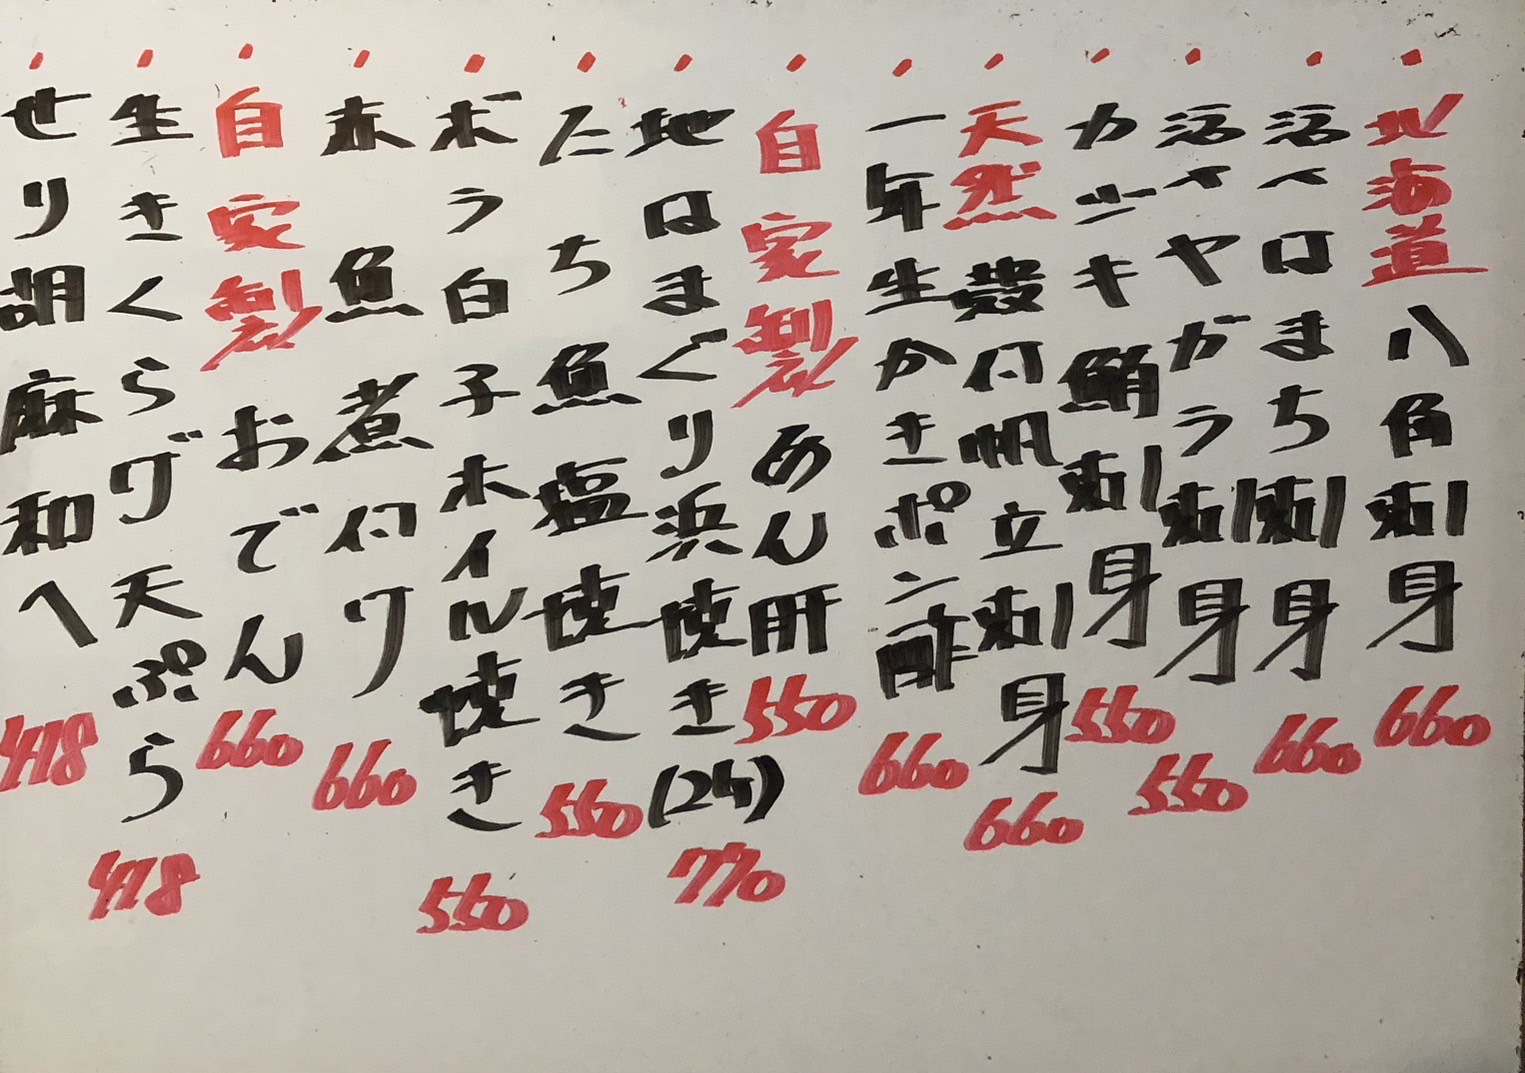 ・北海道八角刺身 660
・活〆はまち刺身 660
・活〆ヤガラ刺身 550
・カジキ鮪刺身 550
・天然殻付帆立刺身 660
・一年生かきポン酢 660
・自家製あん肝 550
・地はまぐり浜焼き(2ケ) 770
・たち魚塩焼き 550
・ボラ白子ホイル焼き 550
・赤魚煮付け 660
・自家製おでん 660
・生きくらげ天ぷら 418
・せり胡麻和へ 418